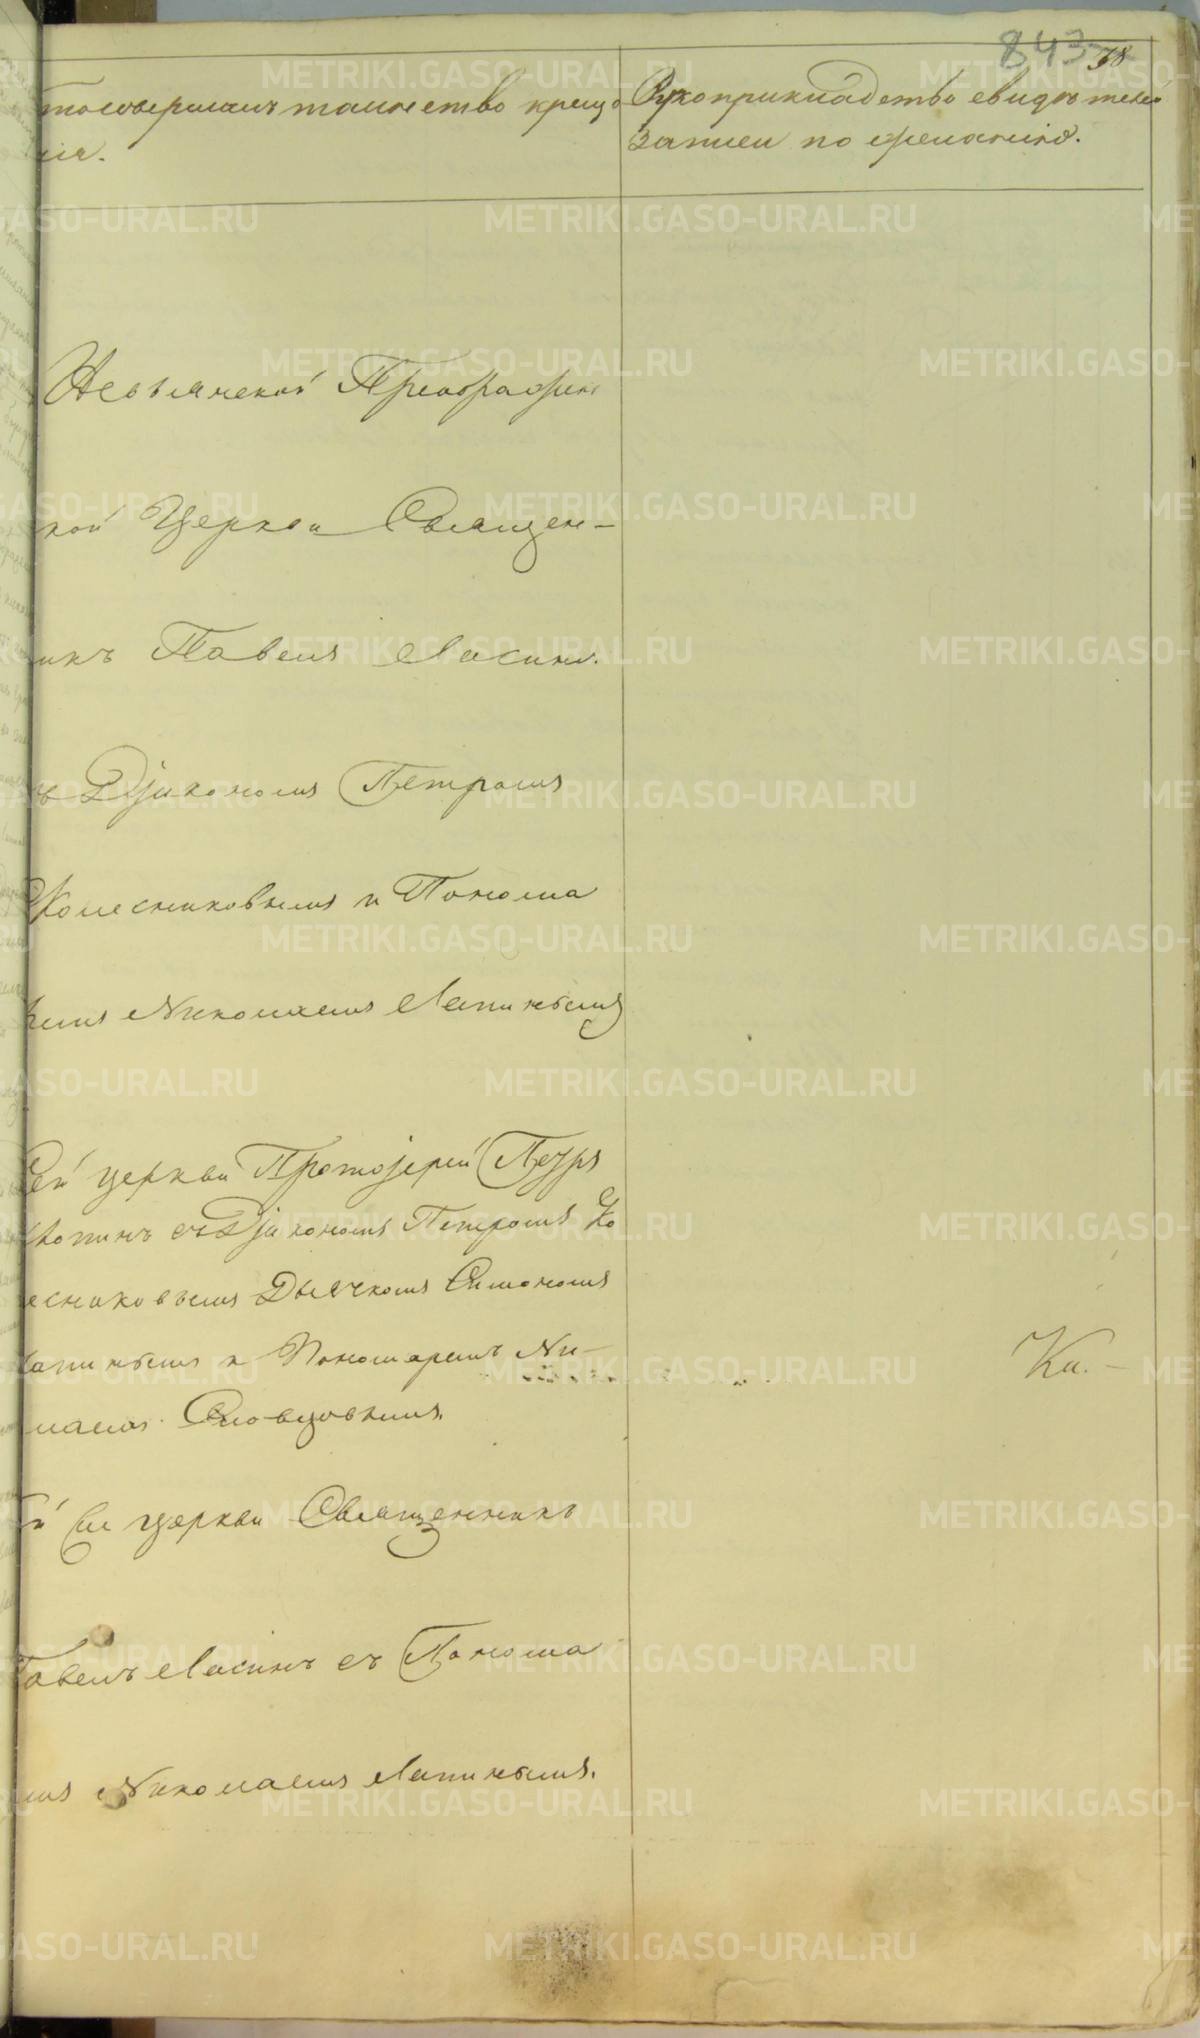 843
38
тосовершалъ таинство креще
нія.
Рукоприкладство свидѣтелей
записи по желанію.
Невьянской Преображен
кой Церкви Священ-
икъ Павелъ Ласинъ
ъ Діакономъ Петромъ
Колесниковымъ и Понома
емъ Николаемъ Лапинымъ
Сей церкви Протоіерей Петръ
съ Діакономъ Петромъ Ко
есниковымъ Дьячкомъ Симономъ
апинымъ и Пономаремъ Ни-
лаемъ Словцовымъ.
Той же церкви Священникъ
Павелъ Ласинъ съ Понома
емъ Николаемъ Лапинымъ.
METRIKI.GASO-URAL.RU